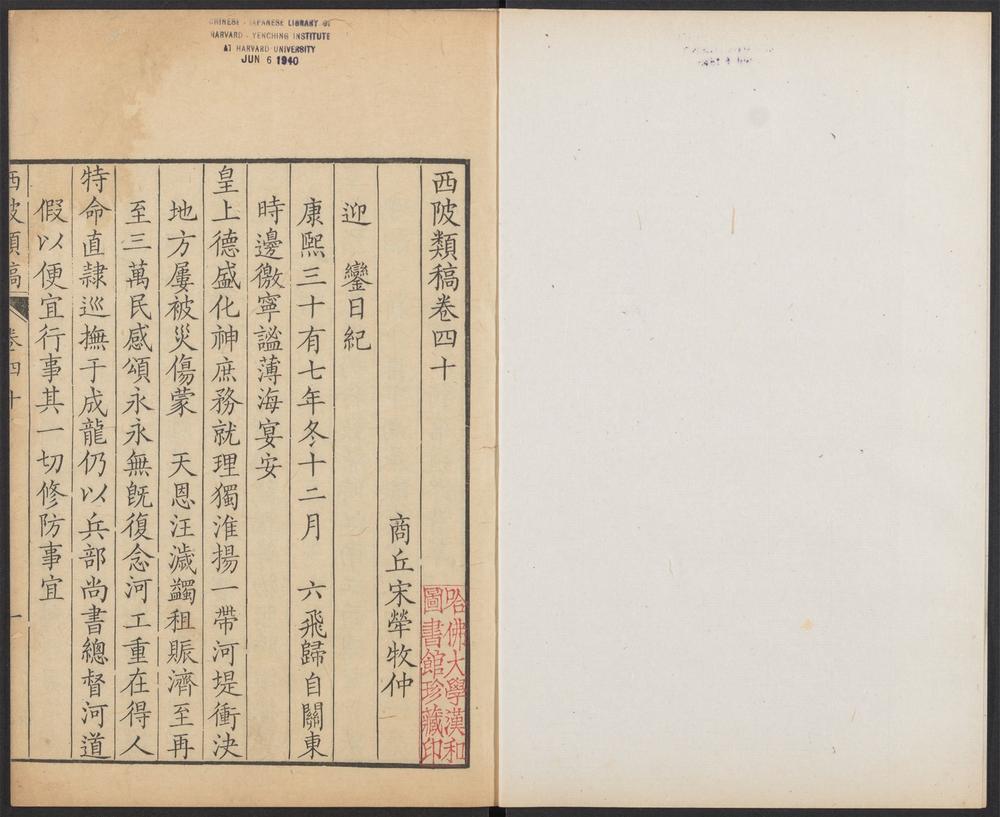 CHINESE - JAPANESE LIBRARY OF
HARVARD - YENCHING INSTITUTE
AT HARVARD UNIVERSITY
JUN 6 1940
西陂類稿卷四十
哈佛大學漢和
圖書館珍藏印
商丘宋犖牧仲
迎 鑾日紀
康熙三十有七年冬十二月 六飛歸自關東
時邊徼寧謐薄海宴安
皇上德盛化神庶務就理獨淮揚一帶河堤衝決
地方屢被災傷蒙 天恩汪濊蠲租賑濟至再
至三萬民感頌永永無旣復念河工重在得人
特命直隷巡撫于成龍仍以兵部尚書總督河道
假以便宜行事其一切修防事宜
西陂類稿 卷四十 一